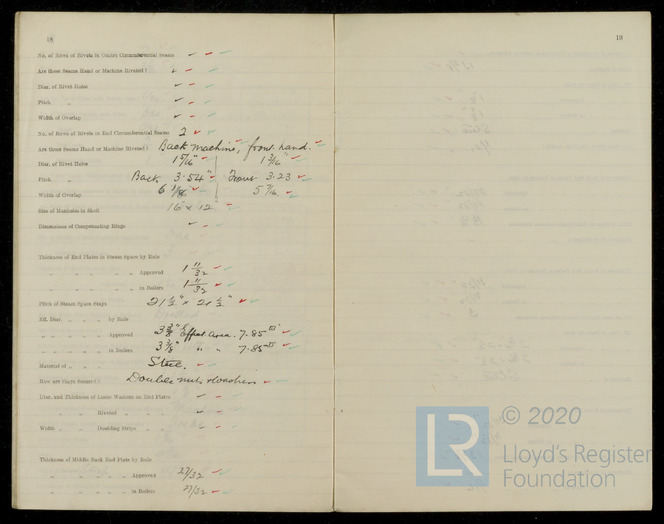 18
No. of Rows of Rivets in Centre Circumferential Seams
Are these Seams Hand or Machine Riveted?
Diar. of Rivet Holes
Pitch "
Width of Overlap
No. of Rows of Rivets in End Circumferential Seams 2
Are these Seams Hand or Machine Riveted? Back machine, front hand.
Diar. of Rivet Holes 1 5/16" 1 3/16"
Pitch " Back 3.54" Front 3.23
Width of Overlap 6 1/8 5 7/16
Size of Manholes in Shell 16" x 12"
Dimensions of Compensating Rings
Thickness of End Plates in Steam Space by Rule
" " " " " Approved 1 11/32
" " " " " in Boilers 1 11/32
Pitch of Steam Space Stays 21 1/2" x 21 1/2"
Eff. Diar. " " by Rule
" " " " Approved 3 3/8" Effect Area. 7.85
" " " " in Boilers 3 3/8" " " 7.85
Material of " " Steel.
How are Stays Secured? Double nuts & washers
Diar. and Thickness of Loose Washers on End Plates
" " Riveted " "
Width " Doubling Strips " "
Thickness of Middle Back End Plate by Rule
" " " " " Approved 27/32
" " " " " in Boilers 27/32
19
LR © 2020
Lloyd's Register
Foundation